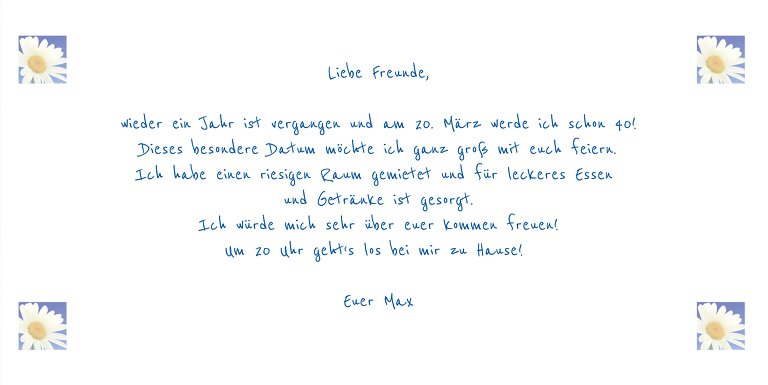 Liebe Freunde,
wieder ein Jahr ist vergangen und am 20. März werde ich schon 40!
Dieses besondere Datum möchte ich ganz groß mit euch feiern.
Ich habe einen riesigen Raum gemietet und für leckeres Essen
und Getränke ist gesorgt.
Ich würde mich sehr über euer Kommen freuen!
Um 20 Uhr geht's los bei mir zu Hause!
Euer Max